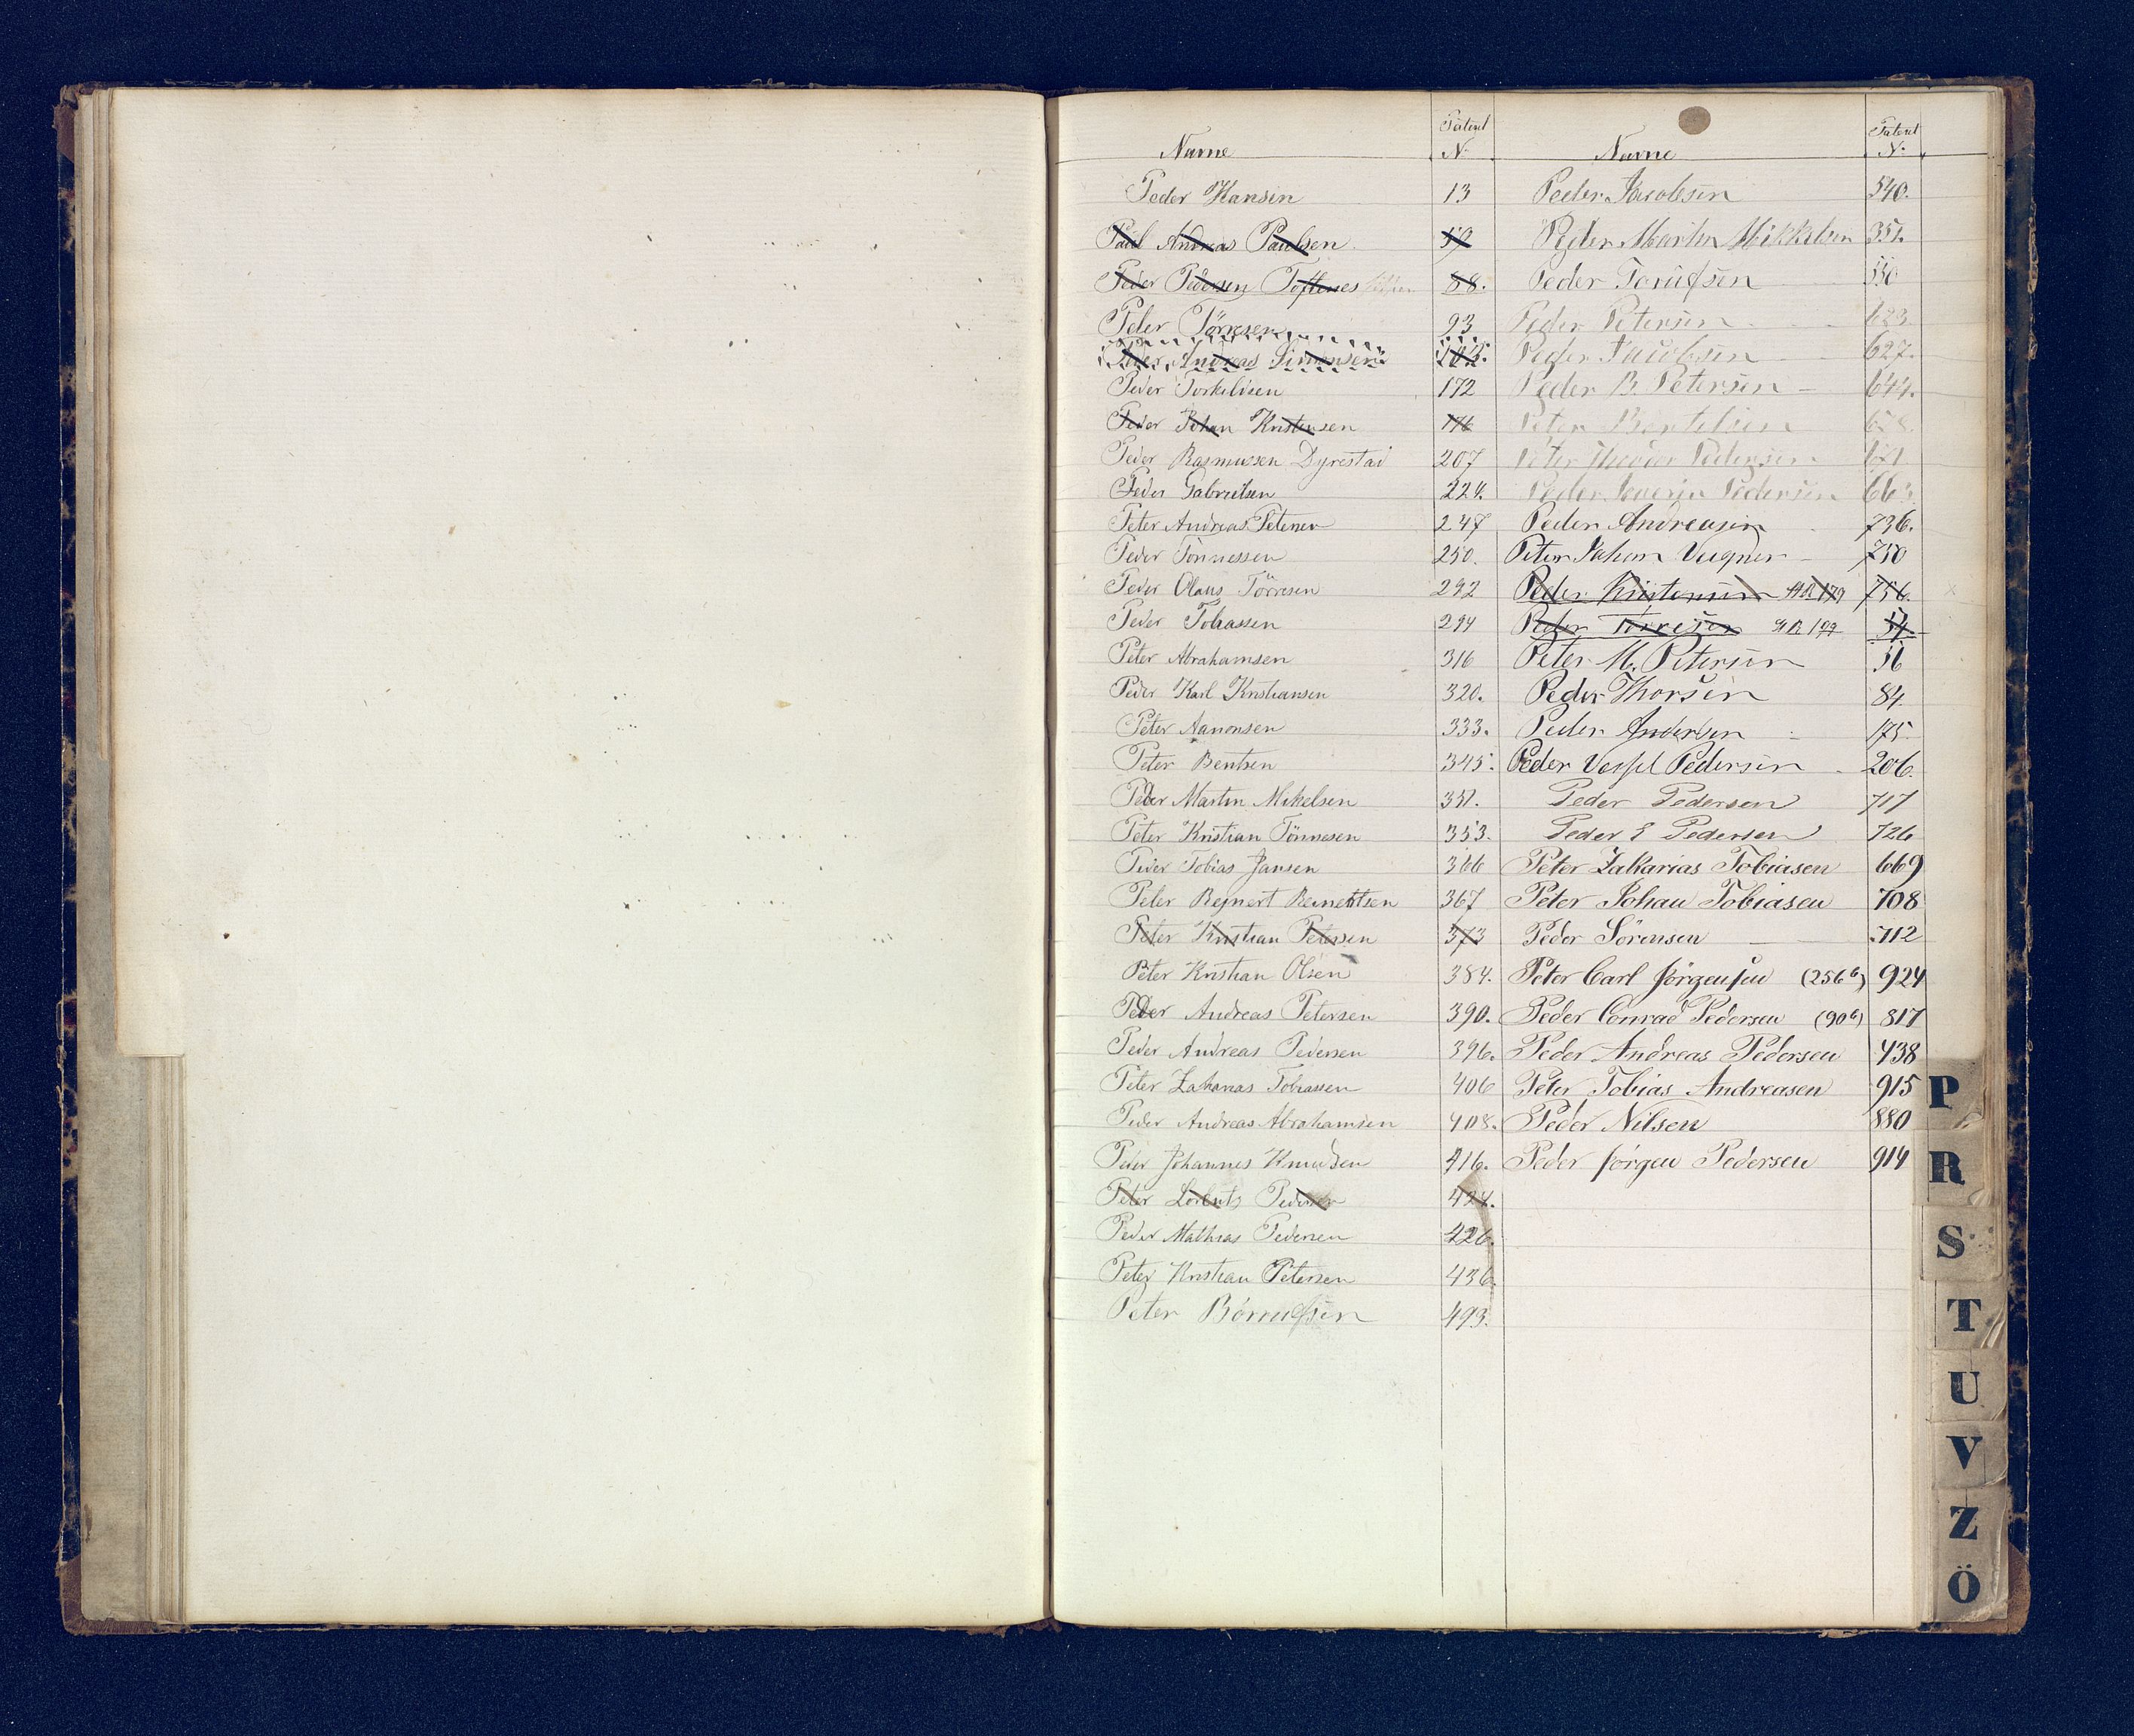 Navne Patent N.
Peder Hansen 13
Paul Andreas Paulsen 59
Peder Pedersen Toftenes 88.
Peder Törresen 93
Peder Andreas Simonsen
Peder Torkildsen 172
Peder Johan Kristensen 176
Peder Rasmussen Dyrestad 207
Peder Gabrielsen 224.
Peter Andreas Petersen 247
Peder Tönnessen 250.
Peder Olaus Törresen 292
Peder Tobiassen 294
Peter Abrahamsen 316
Peder Karl Kristiansen 320.
Peter Aanonsen 333.
Peter Bentsen 345.
Peder Martin Mikelsen 351.
Peter Kristian Tönnesen 353.
Peder Tobias Jansen 366
Peter Rejnert Reinertsen 367
Peter Kristian Petersen 373
Peter Kristian Olsen 384.
Peder Andreas Petersen 390.
Peder Andreas Pedersen 396.
Peter Zakarias Tobiassen 406
Peder Andreas Abrahamsen 408.
Peder Johannes Knudsen 416.
Peter Lorentz Pedersen 424.
Peder Mathias Pedersen 426.
Peter Kristian Petersen 436.
Peter 493.
Navne Patent N.
Peder Jacobsen 540.
Peder Martin Mikkelsen 351.
Peder 550
Peder Petersen 623
Peder Jacobsen 627.
Peder B. Petersen 644.
Peter Bertelsen 658.
Peter Theodor Pedersen
Peder Severin Pedersen
Peder Andreasen 736.
Peter Johan Vegner 750
Peder Kristensen 756.
Peder Törresen 54.
Peter M. Petersen 56
Peder Thorsen 84.
Peder Andersen 175.
Peder Vessel Pedersen 206.
Peder Pedersen 717
Peder E Pedersen 726
Peter Zakarias Tobiasen 669
Peter Johan Tobiasen 708
Peder Sörensen 712
Peter Carl Jörgensen (256b) 924
Peder Conrad Pedersen (90b) 817
Peder Andreas Pedersen 438
Peter Tobias Andreasen 915
Peder Nilsen 880
Peder Jörgen Pedersen 914
P
R
S
T
U
V
Z
Ö